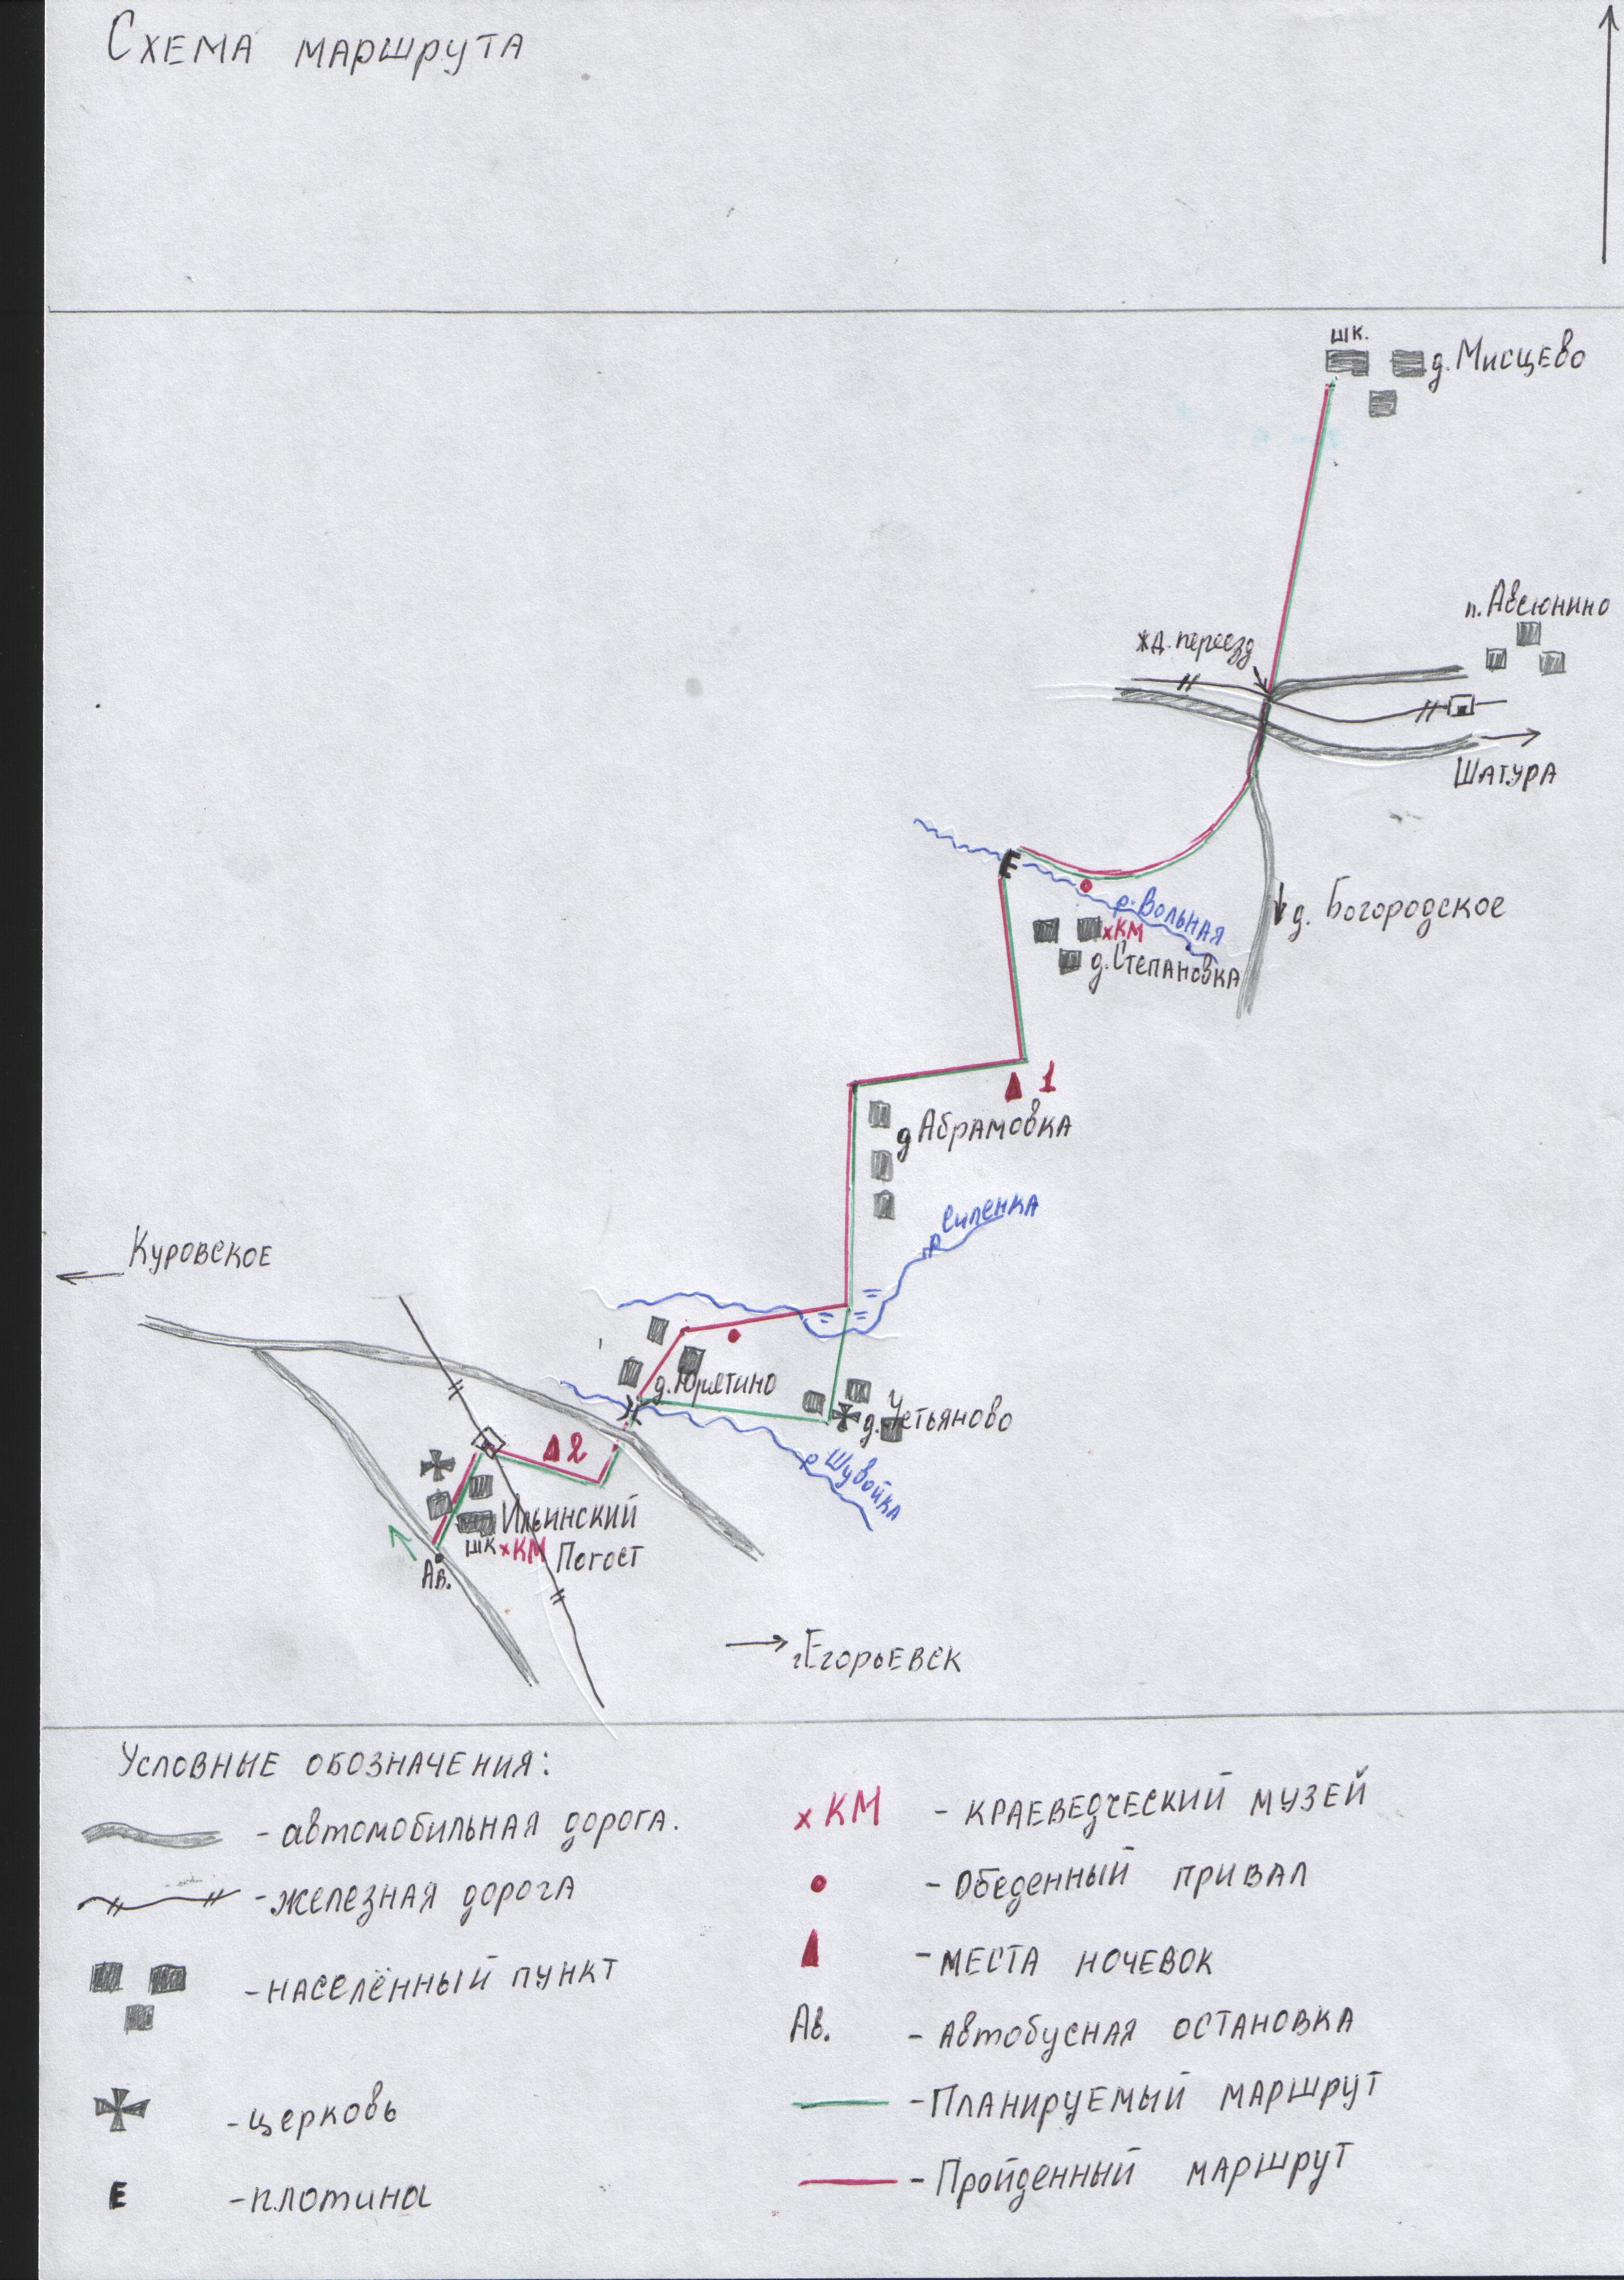 Схема маршрута
шк.
д. Мисцево
п. Авсюнино
жд. переезд
Шатура
р. Вольная
д. Богородское
х КМ
д. Степановка
1
д Абрамовка
р Силенка
Куровское
д. Юрятино
д. Устьяново
2
р Шувойка
Ильинский
Погост
шк х КМ
Ав.
г Егорьевск
Условные обозначения:
- автомобильная дорога.
- железная дорога
- населённый пункт
- церковь
Е - плотина
х КМ - краеведческий музей
- Обеденный привал
- места ночевок
Ав. - Автобусная остановка
- Планируемый маршрут
- Пройденный маршрут